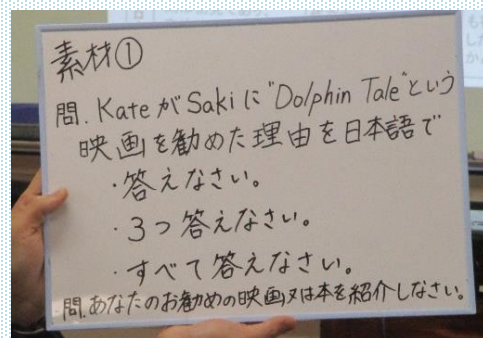 素材①
問.KateがSakiに"Dolphin Tale"という
映画を勧めた理由を日本語で
・答えなさい。
・3つ答えなさい。
・すべて答えなさい。
・問.あなたのお勧めの映画又は本を紹介しなさい。